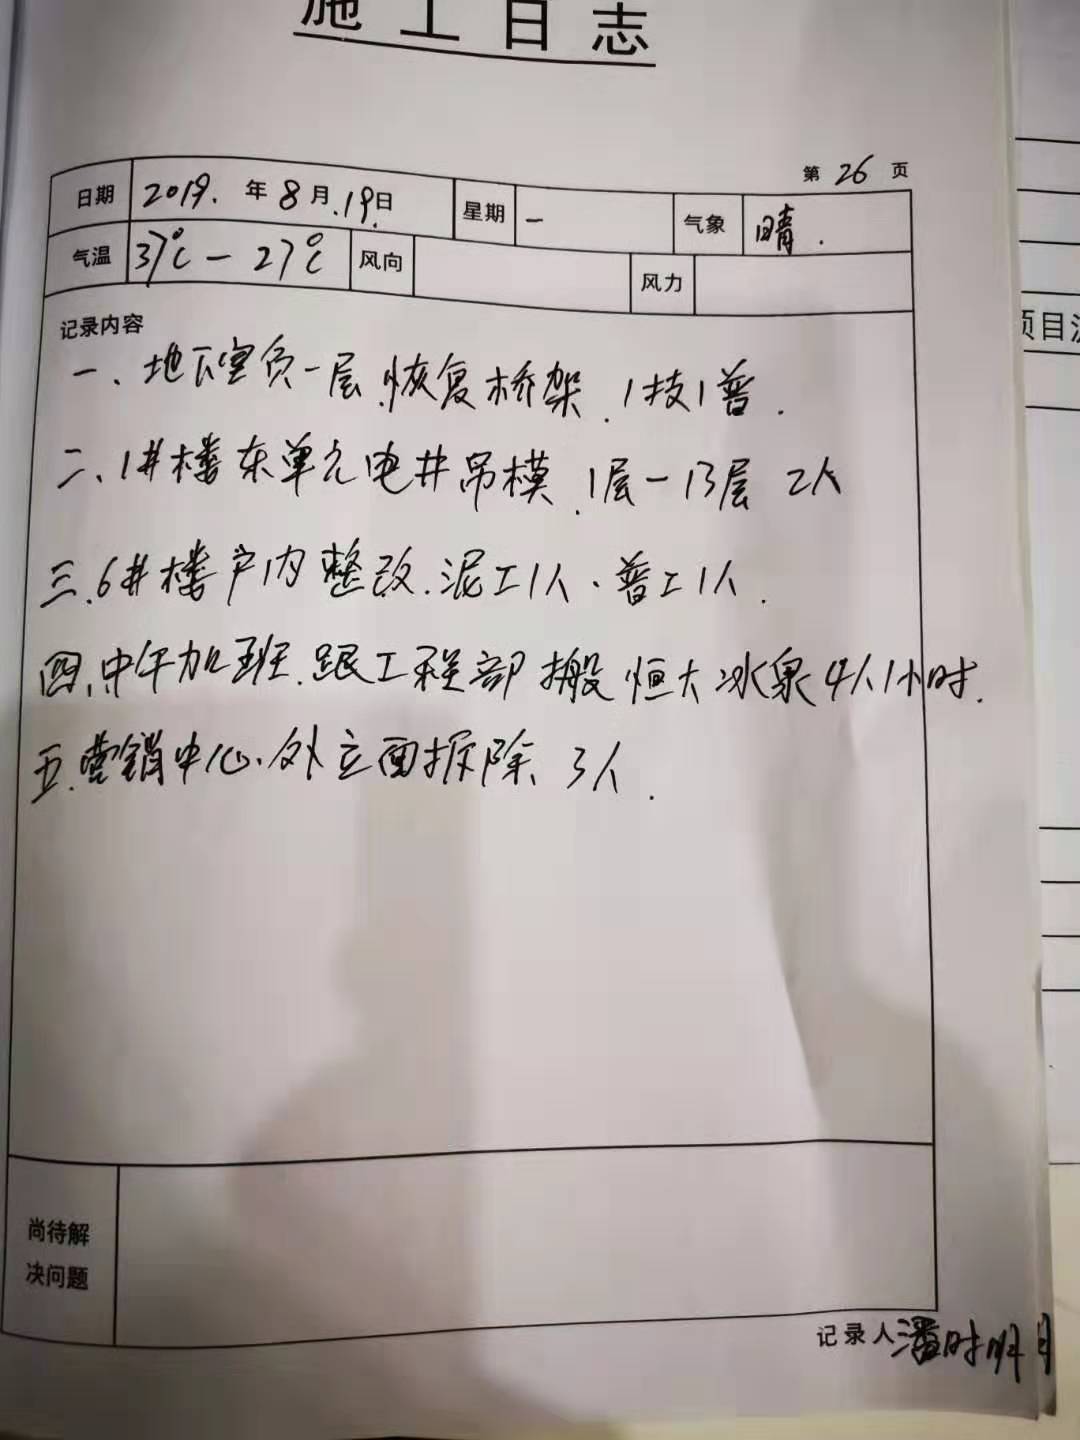 施工日志
第 26 页
日期 2019. 年 8 月 .19. 日 星期 一 气象 晴.
气温 37℃ — 27℃ 风向 风力
记录内容
一、地下室负一层.恢复桥架.1技1普.
二、1#楼东单元电井吊模.1层—13层 2人
三.6#楼户内整改.泥工1人、普工1人.
四、中午加班.跟工程部搬恒大冰泉4人1小时.
五.营销中心、外立面拆除、3人.
尚待解
决问题
记录人潘时明
项目